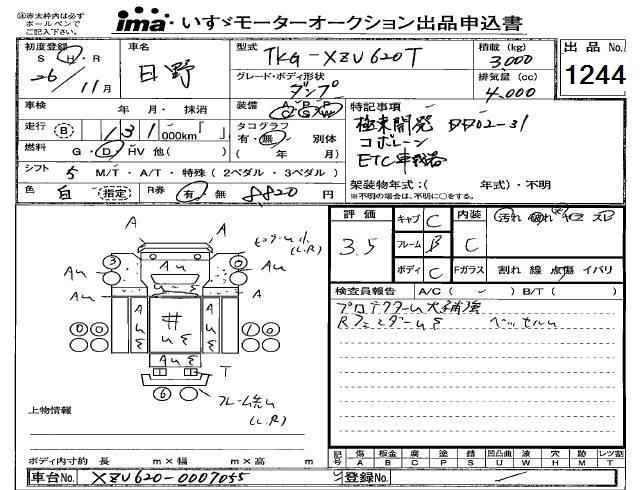 ㊟赤太枠内は必ず
ボールペンで
ご記入下さい。
ima いすゞモーターオークション出品申込書
初度登録 S H・R 26/11月
車名 日野
型式 TKG-XZU620T
積載 (kg) 3,000
出品No. 1244
グレード・ボディ形状 ダンプ
排気量 (cc) 4,000
車検 年 月・ 抹消
装備 A P P C G W
特記事項
走行 B 131 000km「 」
タコグラフ 有・無 別体
( 年 月)
極東開発 DD02-31
コボレーン
燃料 G・D・HV 他( )
シフト 5 M/T・A/T・特殊 (2ペダル・3ペダル)
色 白 指定 R券 有 無 8,820 円
架装物年式:( 年式)・不明
※不明の場合は、不明に○をする。
評価 3.5
キャブ C 内装 C 汚れ 破れ ヤニ スレ
フレーム B
ボディ C Fガラス 割れ 線 点傷 イバリ
検査員報告 A/C( ) B/T( )
A A
(L.R)
3 0
Au Au Au
A A
00 10
T
6
(L.R)
上物情報
ボディ内寸約 長 m×幅 m×高 m
記号 傷 A 板金 B 腐 C 塗 P 錆 S 凹凸曲 U 波 W 穴 H 跡 M レンズ割 T
車台No. XZU620-0007055
登録No.